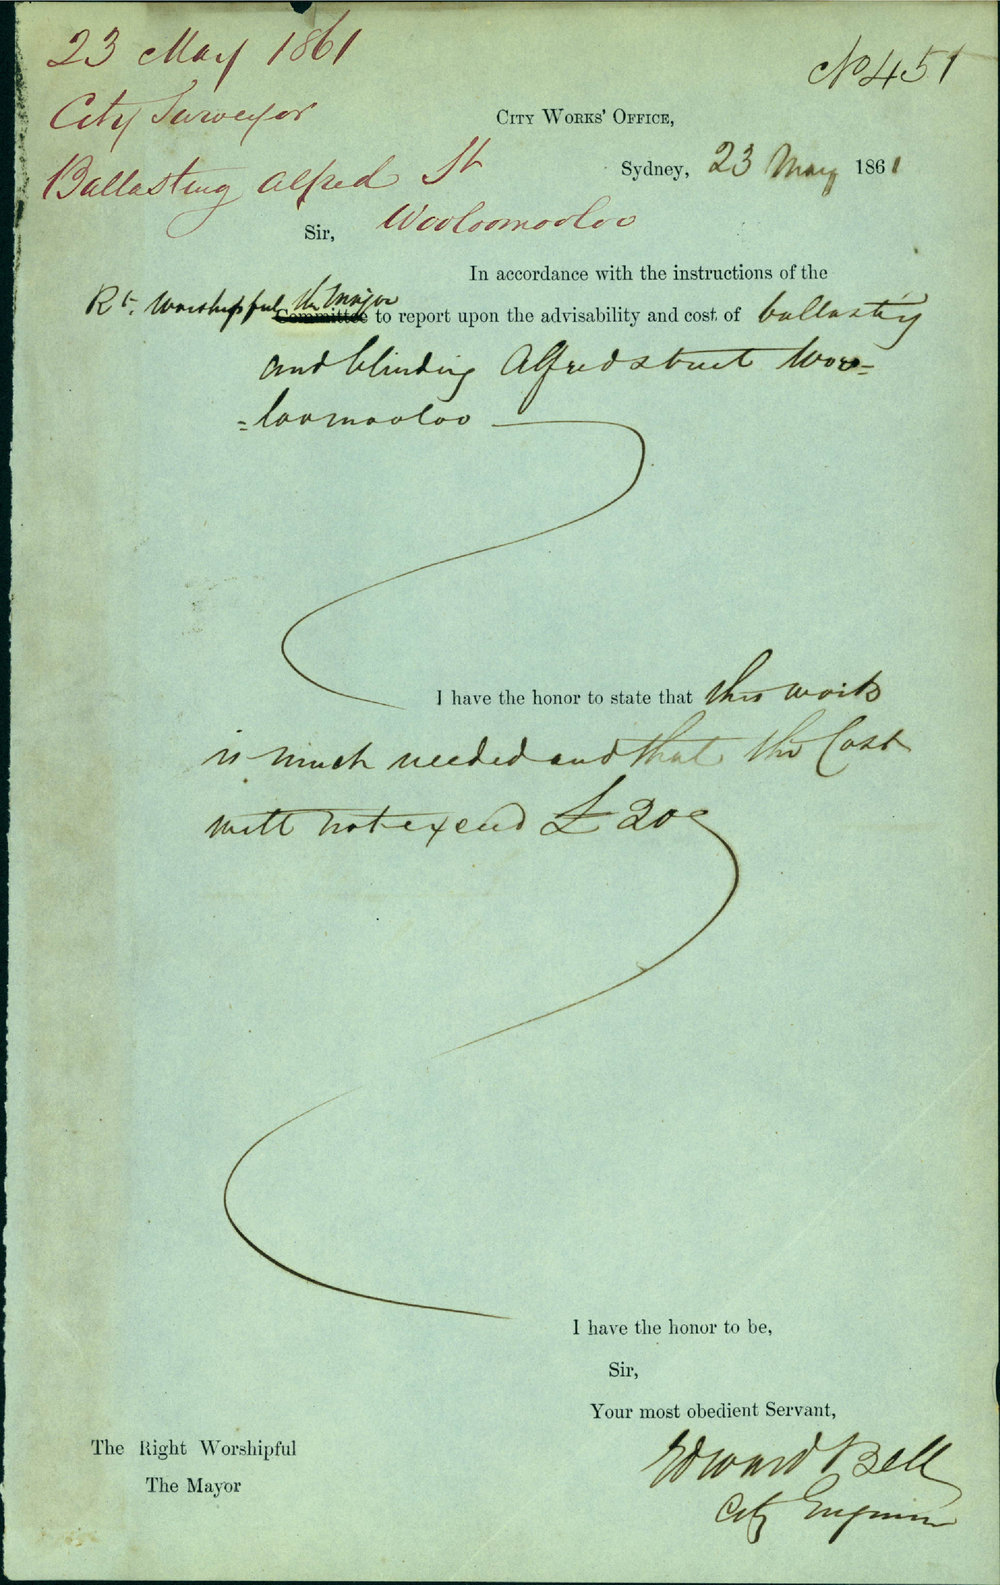 23 May 1861
No 451
City Surveyor
City Works' Office,
Ballasting Alfred St
Sydney, 23 May 1861
Wooloomooloo
Sir,
In accordance with the instructions of the
Rt. Worshipful the Mayor
Committee to report upon the advisability and cost of ballasting
and blinding Alfred street Woo=
=loomooloo
I have the honor to state that this work
is much needed and that the Cost
will not exceed £20
I have the honor to be,
Sir,
Your most obedient Servant,
Edward Bell
City Engineer
The Right Worshipful
The Mayor